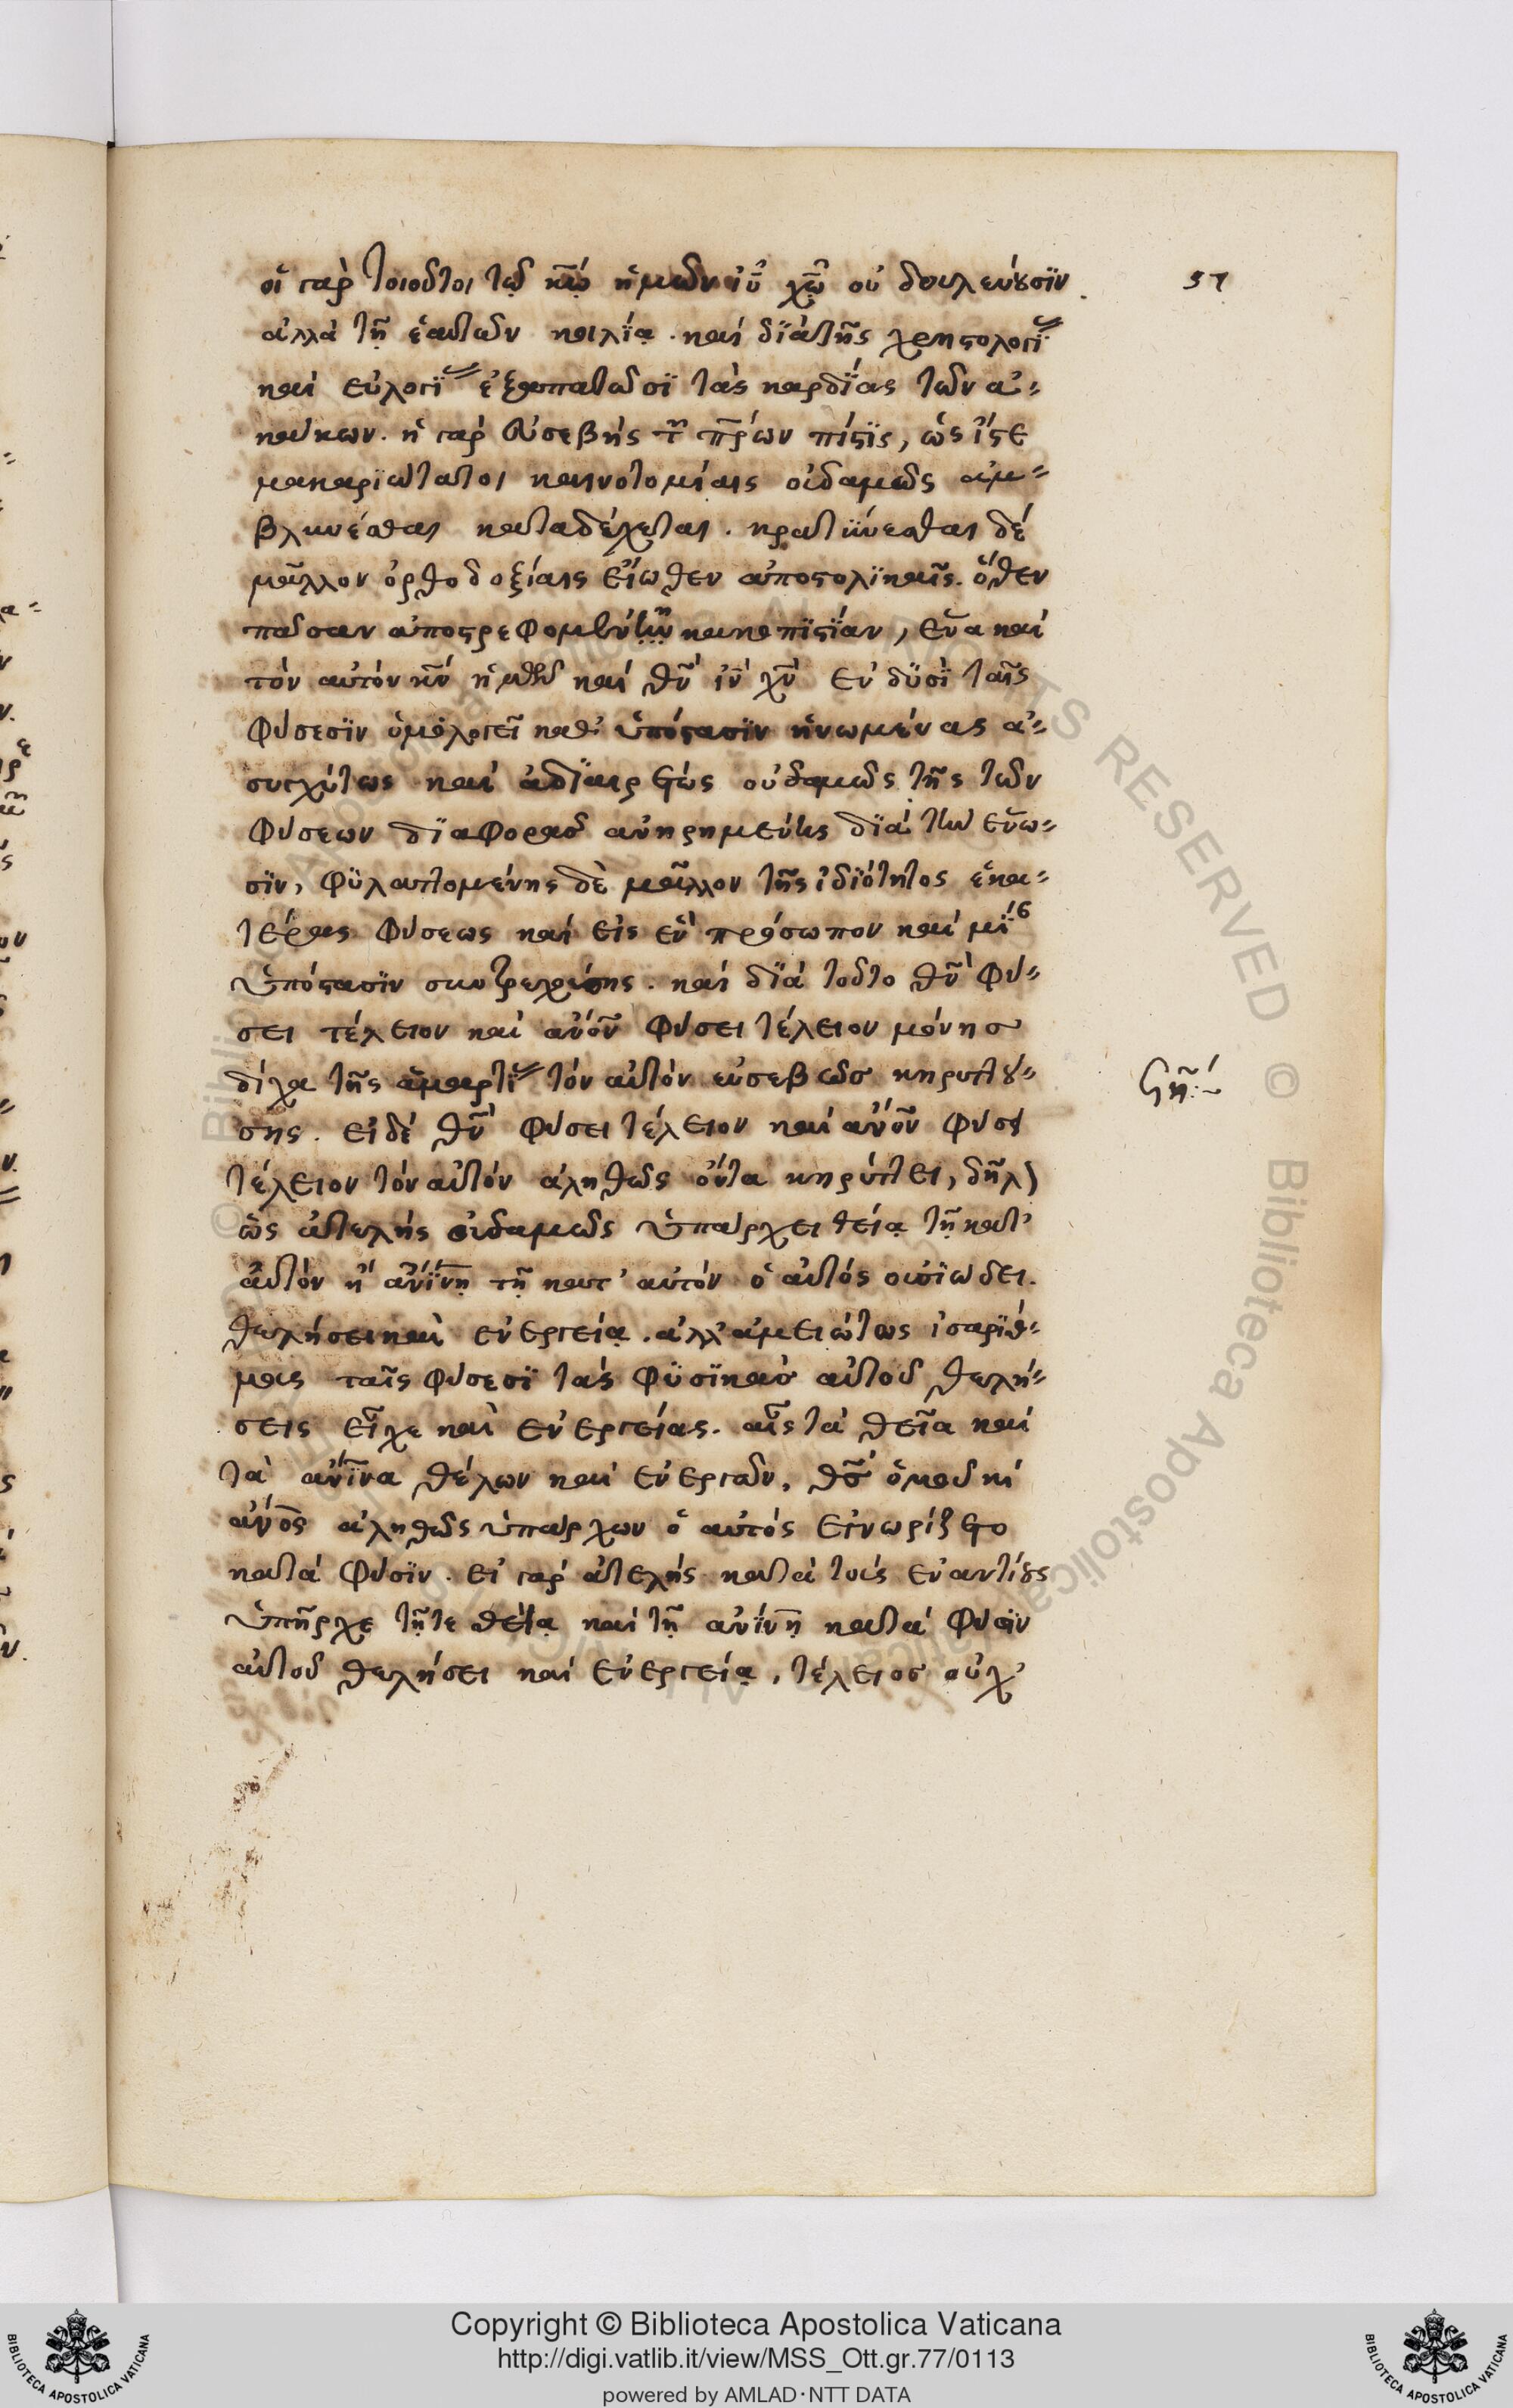 οἱ γὰρ τοιοῦτοι τῷ κῶ ἡμῶν ιῦ χῶ οὐ δουλεύουσϊν. 57
ἀλλὰ τῇ ἑαυτῶν κοιλΐᾳ. καὶ δϊὰ τῆς χρηστολογΐας
καὶ εὐλογΐας ἐξαπατῶσϊ τὰς καρδΐας τῶν ἀ-
κάκων. ἡ γὰρ εὐσεβὴς τῶν πρων πίστϊς, ὡς ἴστε
μακαρϊώτατοι καινοτομίαις οὐδαμῶς ἀμ-
βλυνέσθαι καταδέχεται. κρατύνεσθαι δὲ
μᾶλλον ὀρθοδοξίαις εἴωθεν ἀποστολϊκαῖς. ὅθεν
πᾶσαν ἀποστρεφομένη κακοπϊστΐαν, ἕνα καὶ
τὸν αὐτὸν κν ἡμῶν καὶ θν ιν χν ἐν δϋσϊ ταῖς
φύσεσϊν ὁμολογεῖ καθ' ὑπόστασϊν ἡνωμένας ἀ-
συγχύτως καὶ ἀδϊαιρέτως οὐδαμῶς τῆς τῶν
φύσεων δϊαφορᾶς ἀνῃρημένης δϊὰ τὴν ἕνω-
σϊν, φϋλαττομένης δὲ μᾶλλον τῆς ἰδϊότητος ἑκα-
τέρας φύσεως καὶ εἰς ἓν πρόσωπον καὶ μΐαν
ὑπόστασϊν συντρεχούσης. καὶ δϊὰ τοῦτο θν φύ-
σει τέλειον καὶ ἄνον φύσει τέλειον μόνης
δίχα τῆς ἁμαρτΐας τὸν αὐτὸν εὐσεβῶς κηρυττού- Ση:~
σης. εἰ δὲ θν φύσει τέλειον καὶ ἄνον φύσει
τέλειον τὸν αὐτὸν ἀληθῶς ὄντα κηρύττει, δῆλ)
ὡς ἀτελὴς οὐδαμῶς ὑπάρχει θείᾳ τῇ κατ'
αὐτὸν ἢ ἀνΐνῃ τῇ κατ' αὐτὸν ὁ αὐτὸς οὐσϊώδει.
θελήσει καὶ ἐνεργείᾳ. ἀλλ' ἀμειώτως ἰσαρΐθ-
μους ταῖς φύσεσϊ τὰς φϋσϊκὰς αὐτοῦ θελή-
σεις εἶχε καὶ ἐνεργείας. αἷς τὰ θεῖα καὶ
τὰ ἀνΐνα θέλων καὶ ἐνεργῶν, θς ὁμοῦ κὶ
ἄνος ἀληθῶς ὑπάρχων ὁ αὐτὸς ἐγνωρίζετο
κατὰ φύσϊν. εἰ γὰρ ἀτελὴς κατὰ τοὺς ἐναντίους
ὑπῆρχε τῇ τε θείᾳ καὶ τῇ ἀνΐνῃ κατὰ φύσϊν
αὐτοῦ θελήσει καὶ ἐνεργείᾳ, τέλειος οὐχ'
Copyright © Biblioteca Apostolica Vaticana
http://digi.vatlib.it/view/MSS_Ott.gr.77/0113
powered by AMLAD·NTT DATA